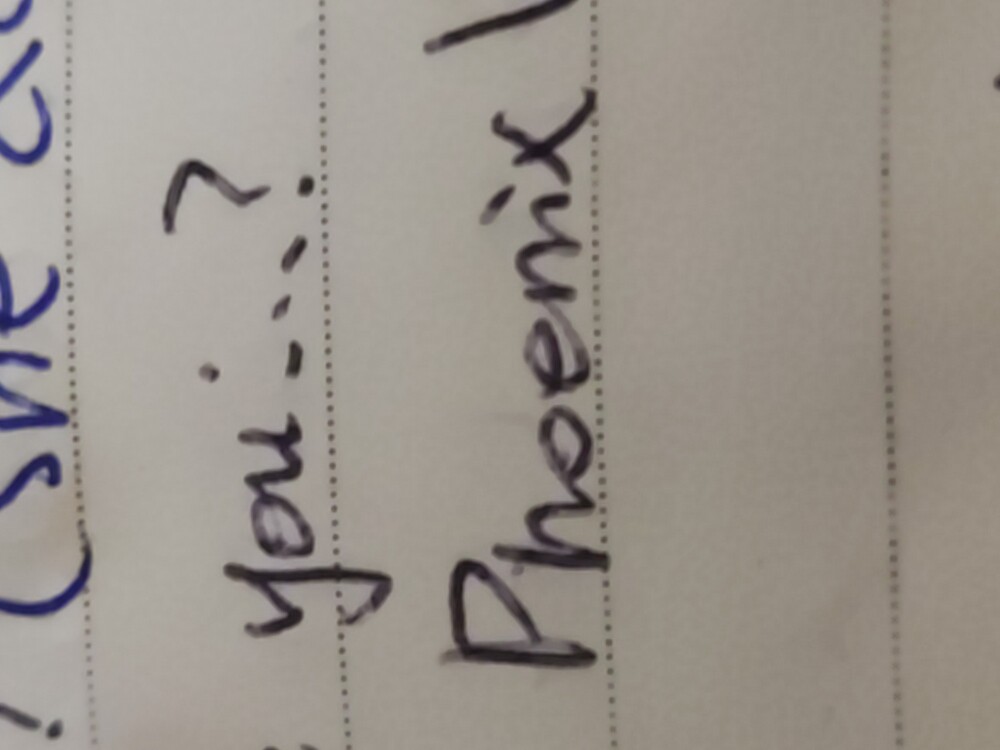 ? (she
you:...?
Phoenix